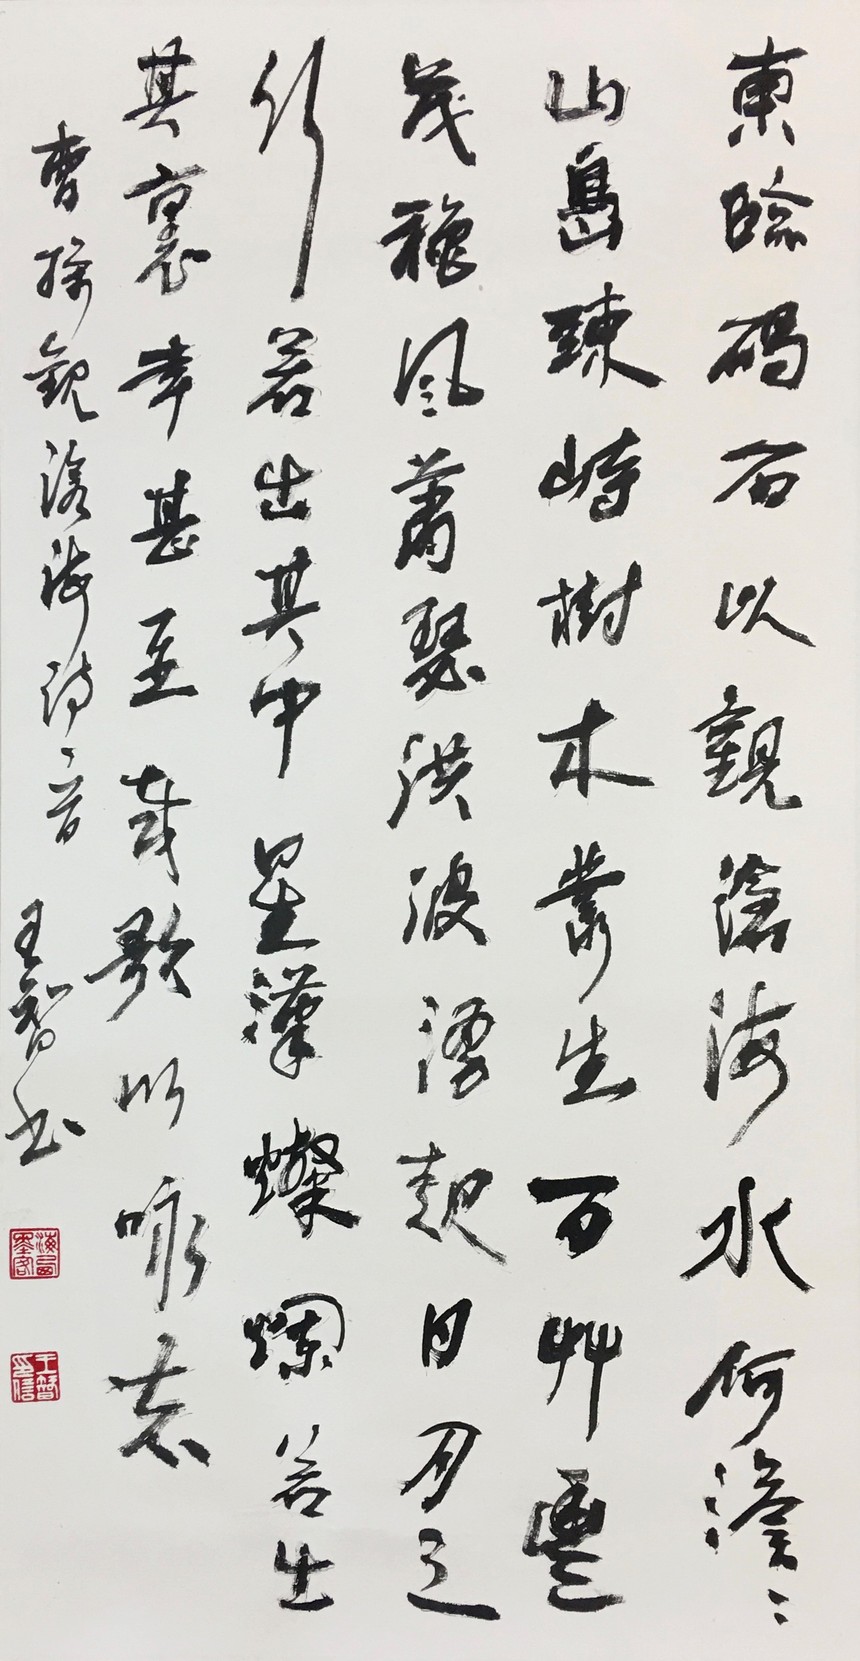 東臨碣石以觀滄海水何澹〻
山島竦峙樹木叢生百艸豐
茂穐風蕭瑟洪波湧起日月之
行若出其中星漢燦爛若出
其裏幸甚至哉歌以咏志
曹操觀滄海詩一首 王智书